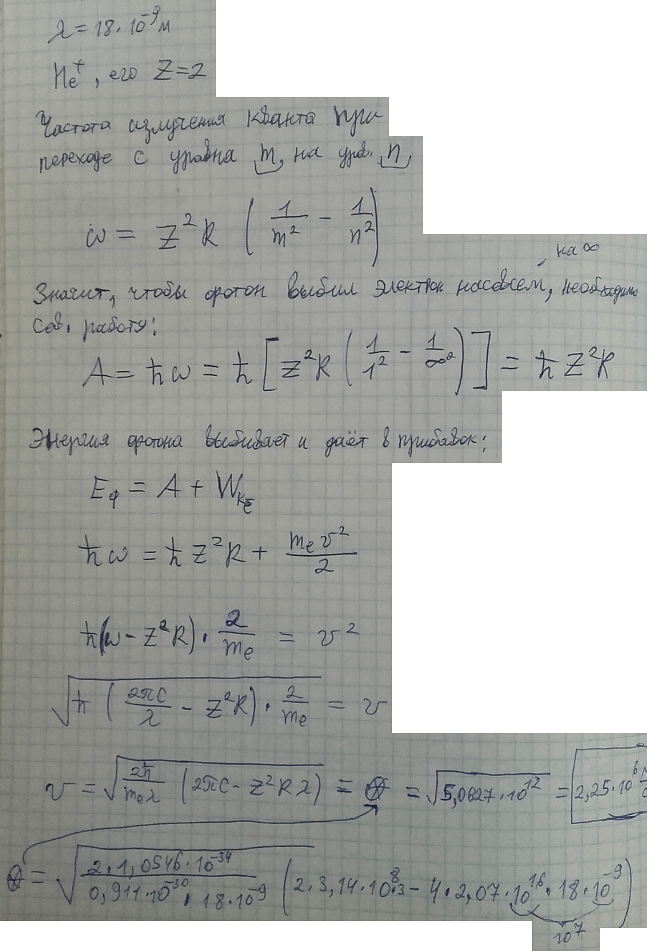 λ = 18·10⁻⁹ м
He⁺, его Z=2
Частота излучения кванта при
переходе с уравна m, на урв. n,
ω = Z²R (1/m² − 1/n²)
на ∞
Значит, чтобы фотон выбил электрон насовсем, необходимо
сов. работу:
A = ħω = ħ[Z²R(1/1² − 1/∞²)] = ħZ²R
Энергия фотона выбивает и даёт в прибавок:
Eф = A + Wкē
ħω = ħZ²R + mₑv²/2
ħ(ω − Z²R)·2/mₑ = v²
√(ħ(2πc/λ − Z²R)·2/mₑ) = v
v = √(2ħ/(mₑλ) (2πc − Z²Rλ)) = ⊗ = √(5,0627·10¹²) = 2,25·10⁶
⊗ = √(2·1,0546·10⁻³⁴/(0,911·10⁻³⁰·18·10⁻⁹) (2·3,14·10⁸·3 − 4·2,07·10¹⁶·18·10⁻⁹)
10⁷